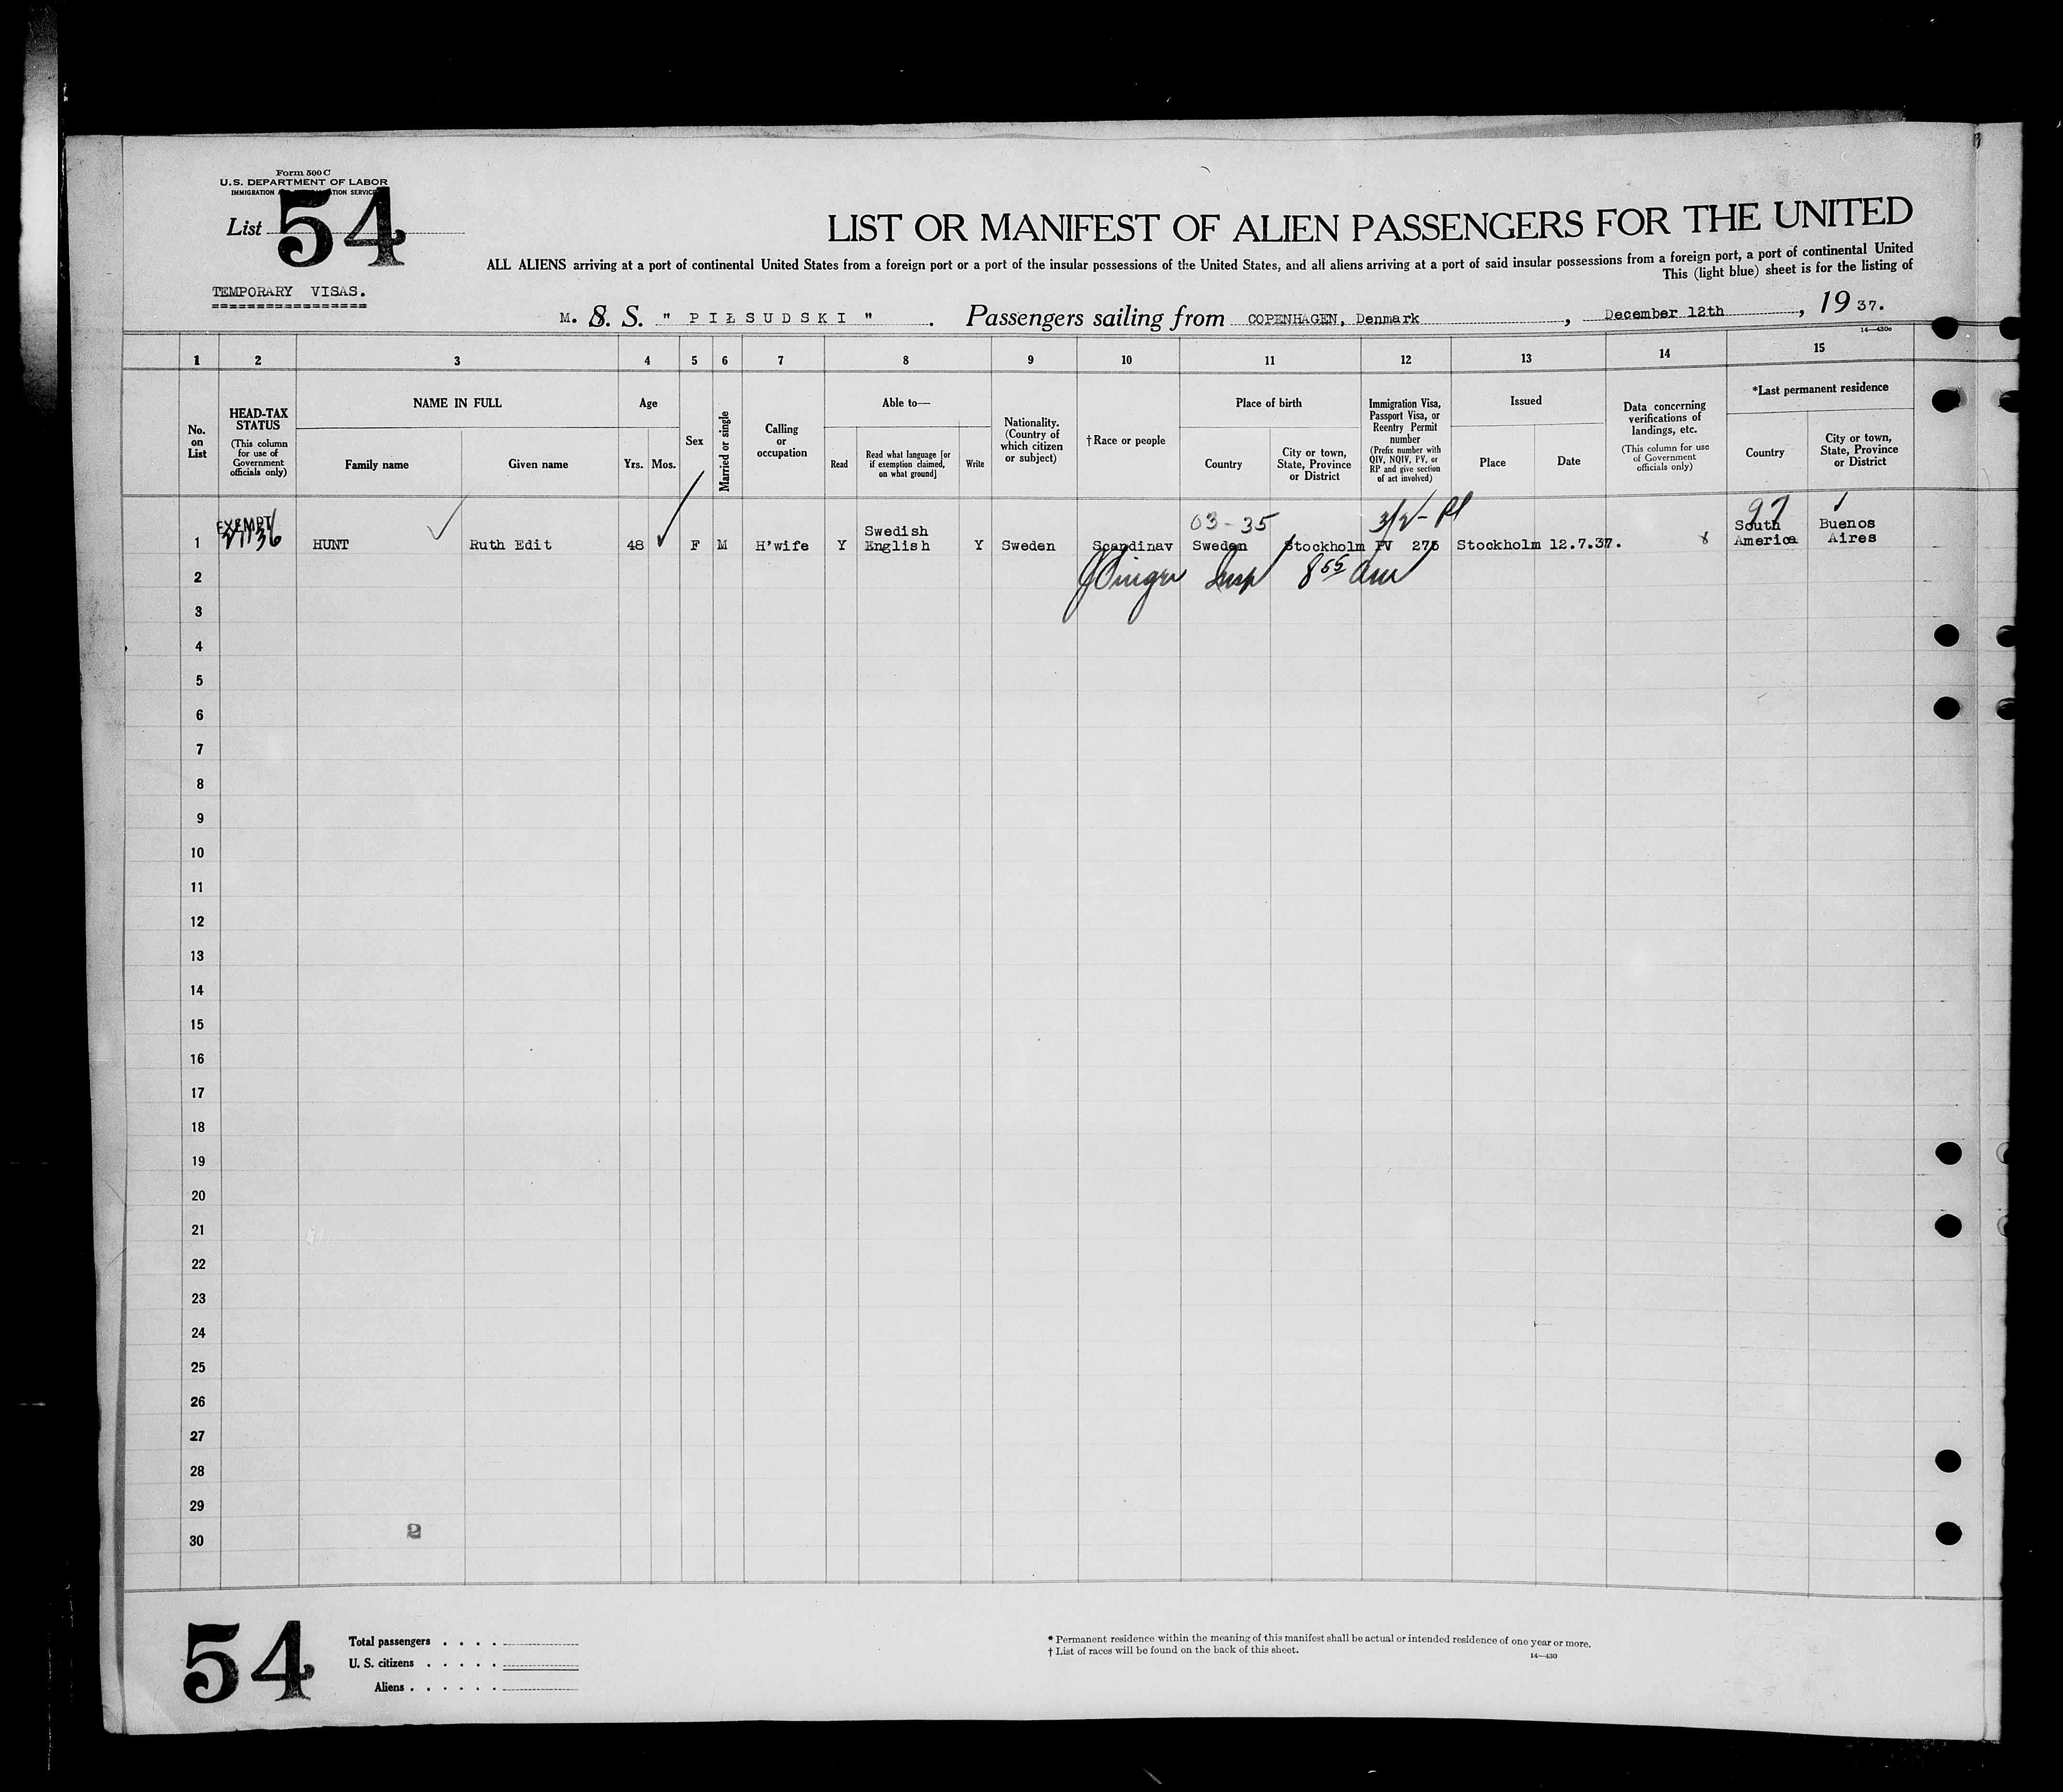 Form 500 C
U.S. DEPARTMENT OF LABOR
List 54
TEMPORARY VISAS.
LIST OR MANIFEST OF ALIEN PASSENGERS FOR THE UNITED
ALL ALIENS arriving at a port of continental United States from a foreign port or a port of the insular possessions of the United States, and all aliens arriving at a port of said insular possessions from a foreign port, a port of continental United
This (light blue) sheet is for the listing of
M. S. S. " PIŁSUDSKI " . Passengers sailing from COPENHAGEN, Denmark , December 12th , 19 37.
14—430c
1 2 3 4 5 6 7 8 9 10 11 12 13 14 15
No. on List
HEAD-TAX STATUS
(This column for use of Government officials only)
NAME IN FULL
Family name
Given name
Age
Yrs.
Mos.
Sex
Married or single
Calling or occupation
Able to—
Read
Read what language [or if exemption claimed, on what ground]
Write
Nationality. (Country of which citizen or subject)
† Race or people
Place of birth
Country
City or town, State, Province or District
Immigration Visa, Passport Visa, or Reentry Permit number
(Prefix number with QIV, NQIV, PV, or RP and give section of act involved)
Issued
Place
Date
Data concerning verifications of landings, etc.
(This column for use of Government officials only)
*Last permanent residence
Country
City or town, State, Province or District
EXEMPT 03-35 97
1 HUNT Ruth Edit 48 F M H'wife Y Swedish English Y Sweden Scandinav Sweden Stockholm PV 275 Stockholm 12.7.37. South America Buenos Aires
Insp 8 55 am
2
3
4
5
6
7
8
9
10
11
12
13
14
15
16
17
18
19
20
21
22
23
24
25
26
27
28
29
2
30
54
Total passengers . . . .
U. S. citizens . . . . .
Aliens . . . . . .
* Permanent residence within the meaning of this manifest shall be actual or intended residence of one year or more.
† List of races will be found on the back of this sheet.
14—430